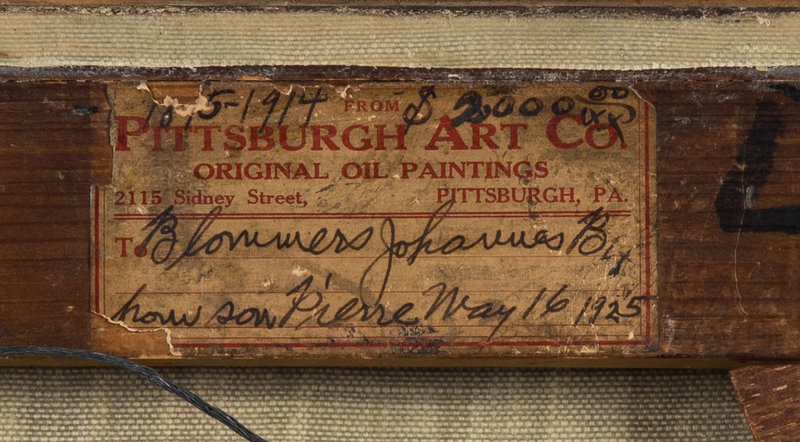 1845-1914 FROM $ 2,000 00/xx
PITTSBURGH ART CO.
ORIGINAL OIL PAINTINGS
2115 Sidney Street, PITTSBURGH, PA.
To Blommers Johannes B
son Pierre May 16 1925